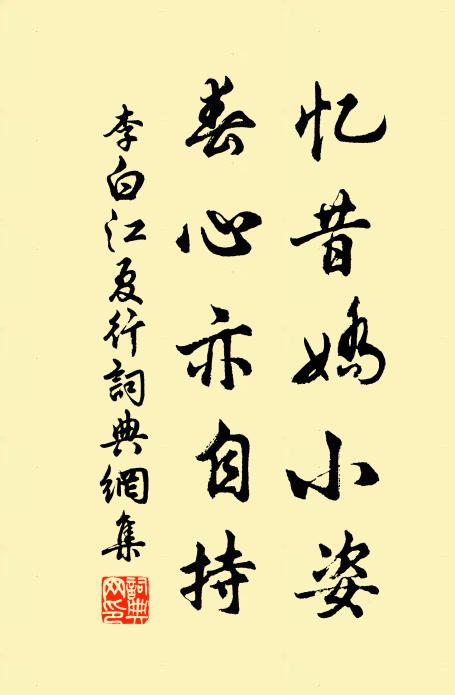 忆昔嬌小姿
春心亦自持
李白江夏行詞典網集